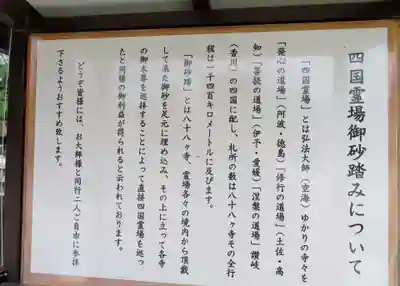 四国霊場御砂踏みについて
「四国霊場」とは弘法大師（空海）ゆかりの寺々を
「発心の道場」（阿波・徳島）「修行の道場」（土佐・高
知）「菩提の道場」（伊予・愛媛）「涅槃の道場」讃岐
（香川）の四国に配し、札所の数は八十八ヶ寺その全行
程は一千四百キロメートルに及びます。
「御砂踏」とは八十八ヶ寺、霊場各々の境内から頂戴
して来た御砂を足元に埋め込み、その上に立って各寺
の御本尊を巡拝することによって直接四国霊場を巡っ
たと同様の御利益が得られると云われております。
どうぞ皆様には、お大師様と同行二人ご自由に参拝
下さるようおすすめ致します。